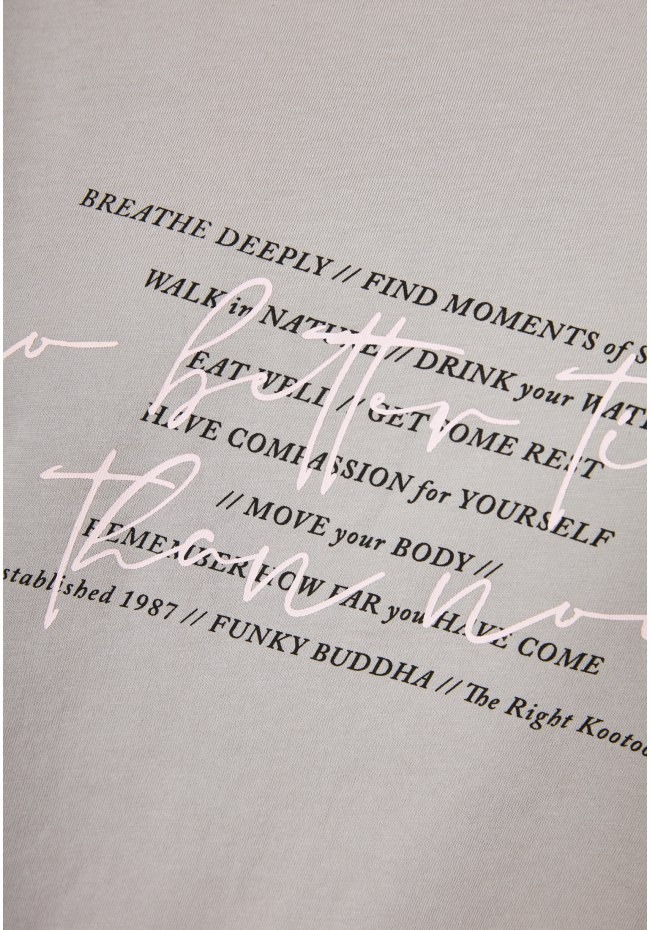 BREATHE DEEPLY // FIND MOMENTS of S
WALK in NATURE // DRINK your WATE
EAT WELL // GET SOME REST
HAVE COMPASSION for YOURSELF
// MOVE your BODY //
REMEMBER HOW FAR you HAVE COME
stablished 1987 // FUNKY BUDDHA // The Right Kootoo
o better ti
than now